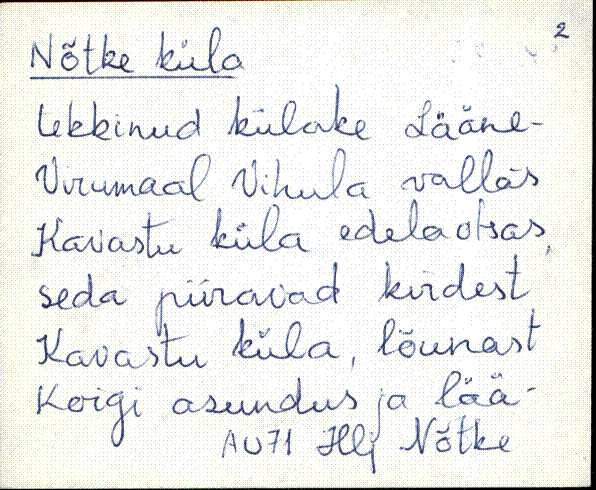 2
Nõtke küla
tekkinud külake Lääne-
Virumaal Vihula vallas
Kavastu küla edelaotsas,
seda piiravad kirdest
Kavastu küla, lõunast
Koigi asundus ja lää-
AU71 Hlj Nõtke